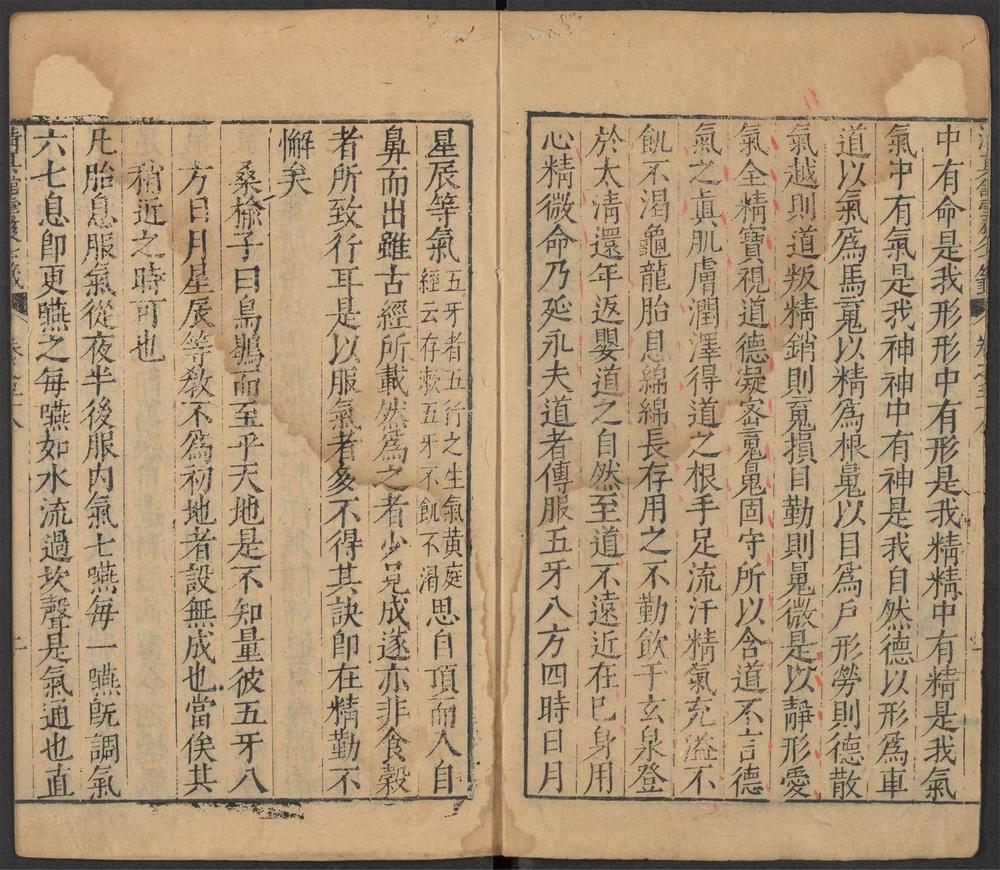 中有命是我形形中有形是我精精中有精是我氣
氣中有氣是我神神中有神是我自然德以形為車
道以氣為馬䰟以精為根魄以目為戶形勞則德散
氣越則道叛精銷則䰟損目勤則魄微是以靜形愛
氣全精寶視道德凝密䰟魄固守所以含道不言德
氣之眞肌膚潤澤得道之根手足流汗精氣充溢不
飢不渴龜龍胎息綿綿長存用之不勤飲于玄泉登
於太淸還年返嬰道之自然至道不遠近在已身用
心精微命乃延永夫道者傳服五牙八方四時日月
星辰等氣五牙者五行之生氣黃庭
經云存漱五牙不飢不渴思自頂而入自
鼻而出雖古經所載然為之者少見成遂亦非食穀
者所致行耳是以服氣者多不得其訣卽在精勤不
懈矣
桑榆子曰鳥鵲而至乎天地是不知量彼五牙八
方日月星辰等敎不為初地者設無成也當俟其
稍近之時可也
凡胎息服氣從夜半後服內氣七嚥每一嚥旣調氣
六七息卽更嚥之每嚥如水流過坎聲是氣通也直